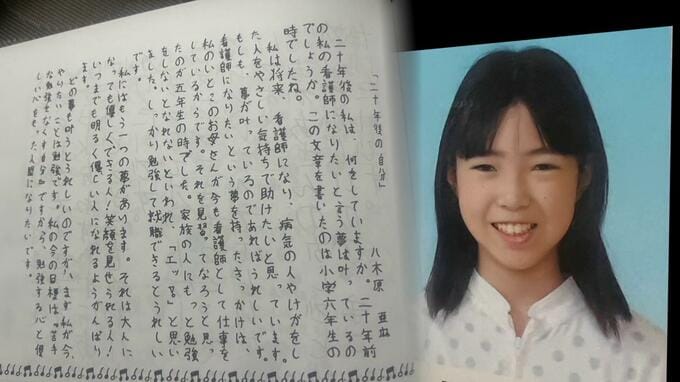 「二十年後の自分」
八木原
二十年後の私は、何をしていますか。二十年前
の私の看護師になりたいと言う夢は叶っているの
でしょうか。この文章を書いたのは小学六年生の
時でしたね。
私は将来、看護師になり、病気の人やけがをし
た人をやさしい気持ちで助けたいと思っています。
もしも、夢が叶っているのであればうれしいです。
看護師になりたいという夢を持ったきっかけは、
私のいとこのお母さんが今も看護師として仕事を
しているからです。それを見習ってなろうと思っ
たのが五年生の時でした。家族の人にもっと勉強
をしないとなれないといわれ、「エッ!?」と思い
ました。しっかり勉強して就職できるとうれしい
です。
私にはもう一つの夢があります。それは大人に
なっても優しくできる人!笑顔を見せられる人!
いつまでも明るく優しい人になれるようがんばり
ます。
どの夢も叶うとうれしいのですが、まず私が今、
やりたいことは勉強です。私の今の目標は「苦手
な勉強をなくす自分」ですから、勉強する心と優
しい心をもった人間になりたいです。